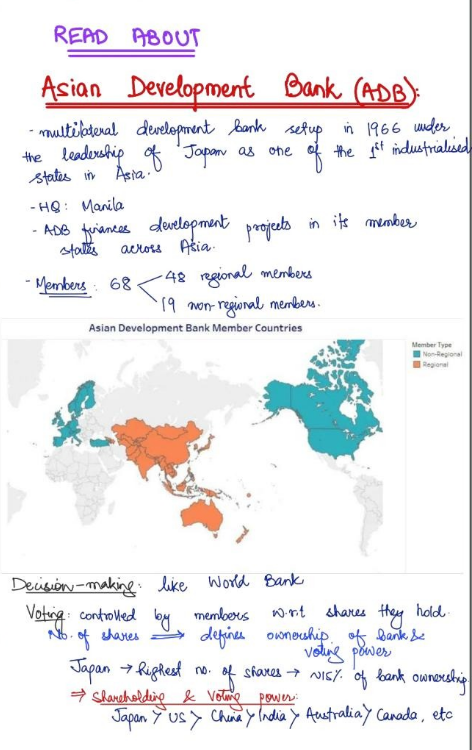 READ ABOUT
Asian Development Bank (ADB):
- multilateral development bank setup in 1966 under
the leadership of Japan as one of the 1st industrialised
states in Asia.
- HQ: Manila
- ADB finances development projects in its member
states across Asia.
- Members: 68 < 48 regional members
19 non-regional members.
Asian Development Bank Member Countries
Member Type
Non-Regional
Regional
Decision-making: like World Bank
Voting: controlled by members w.r.t shares they hold.
No. of shares ⟹ defines ownership of bank &
voting power
Japan → highest no. of shares → ~15% of bank ownership.
⇒ Shareholding & Voting power:
Japan > US > China > India > Australia > Canada, etc